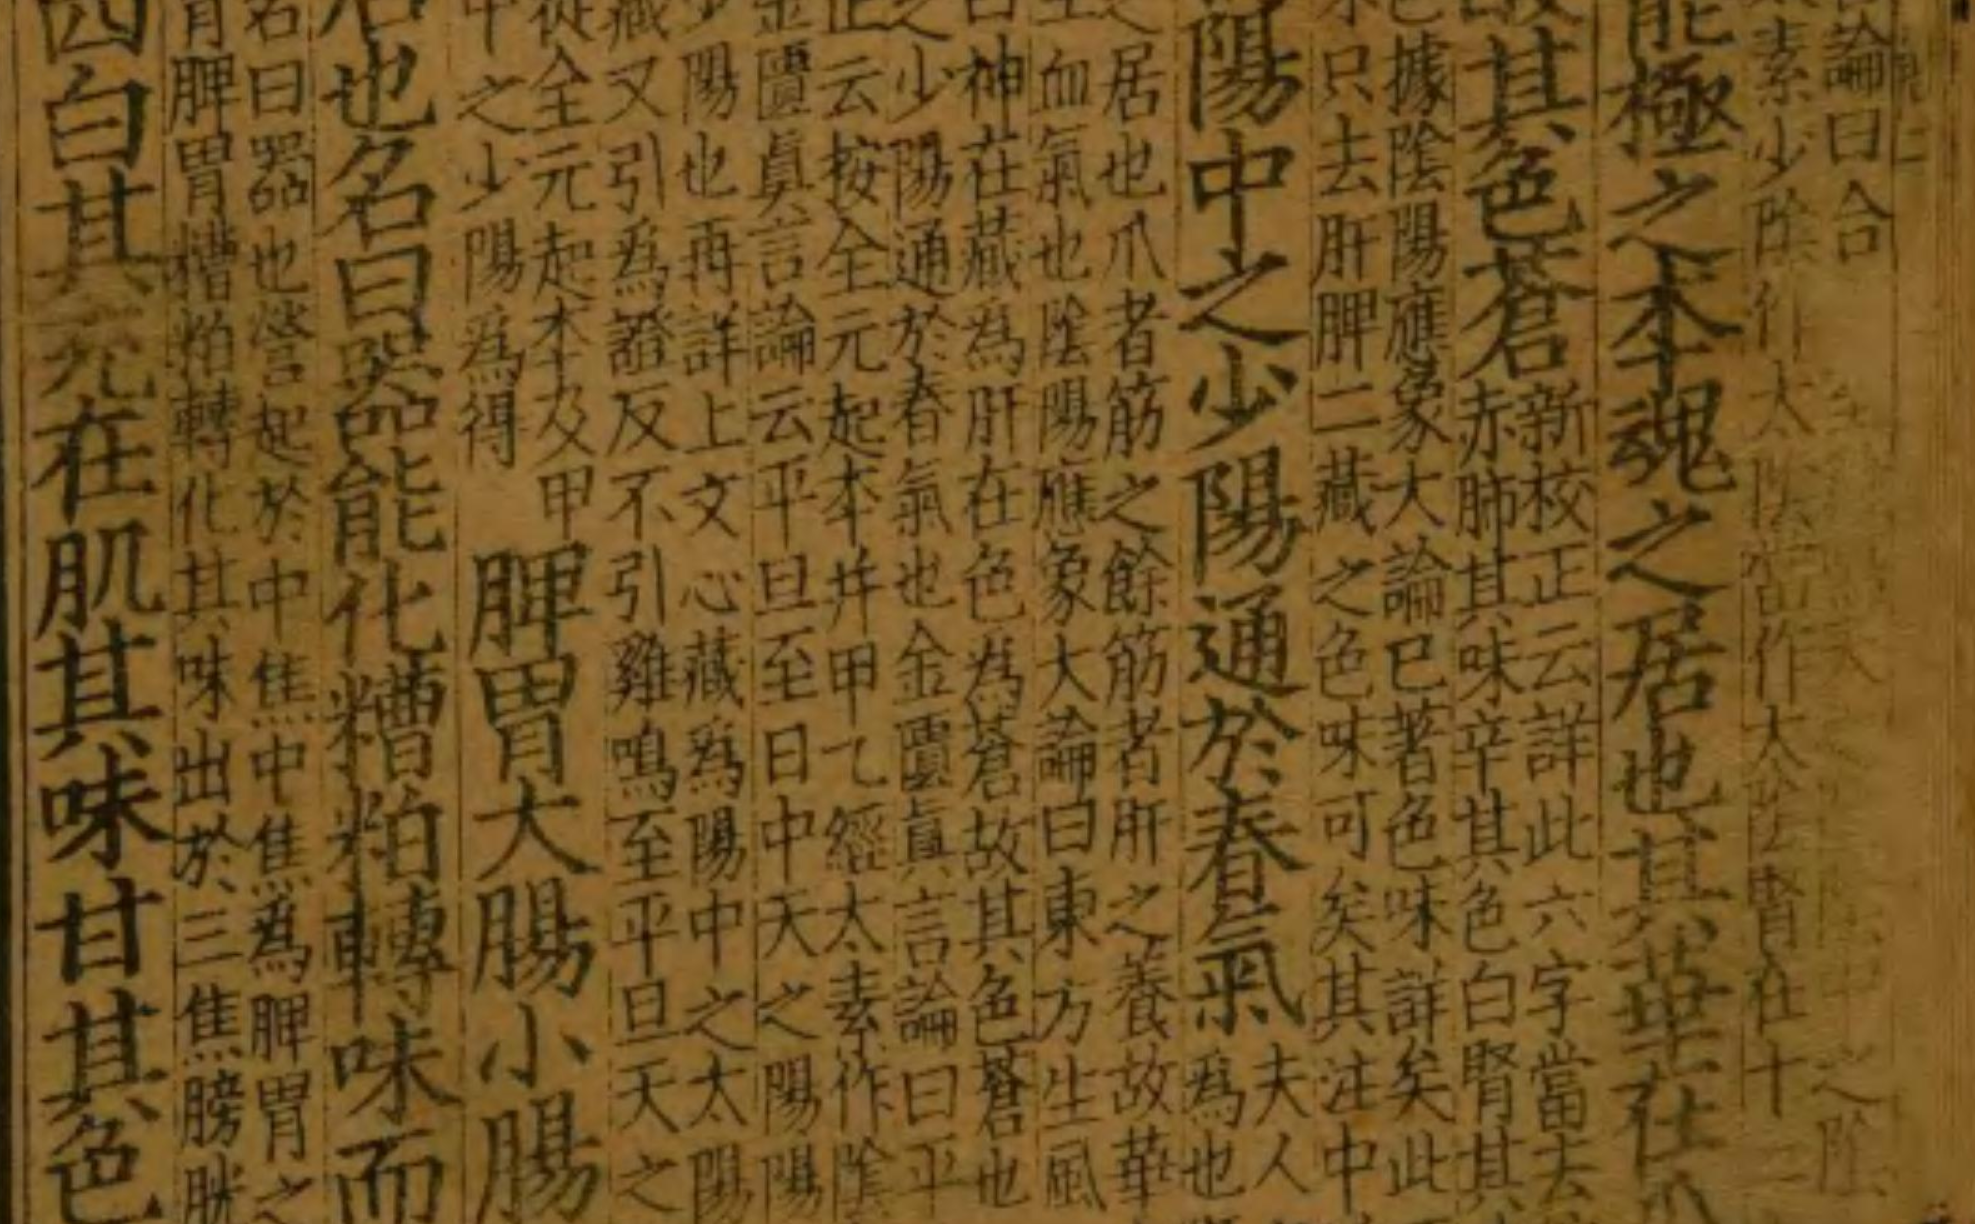 論曰合
素少陰作太陰當作太陰腎在十
能極之本魂之居也其華在
故其色蒼
新校正云詳此六字當去
赤肺其味辛其色白腎其
據陰陽應象大論已著色味詳矣此
只去肝脾二藏之色味可矣其注中
陽中之少陽通於春氣
夫人
爲也
之居也爪者筋之餘筋者肝之養故華
生血氣也陰陽應象大論曰東方生風
神在藏爲肝在色爲蒼故其色蒼也
之少陽通於春氣也金匱眞言論曰平
正云按全元起本并甲乙經太素作陰
金匱眞言論云平旦至日中天之陽陽
少陽也再詳上文心藏爲陽中之太陽
藏又引爲證反不引雞鳴至平旦天之
從全元起本及甲
中之少陽爲得
脾胃大腸小腸
居也名曰器能化糟粕轉味而
名曰器也營起於中焦中焦爲脾胃之
胃脾胃糟粕轉化其味出於三焦膀胱
四白其充在肌其味甘其色